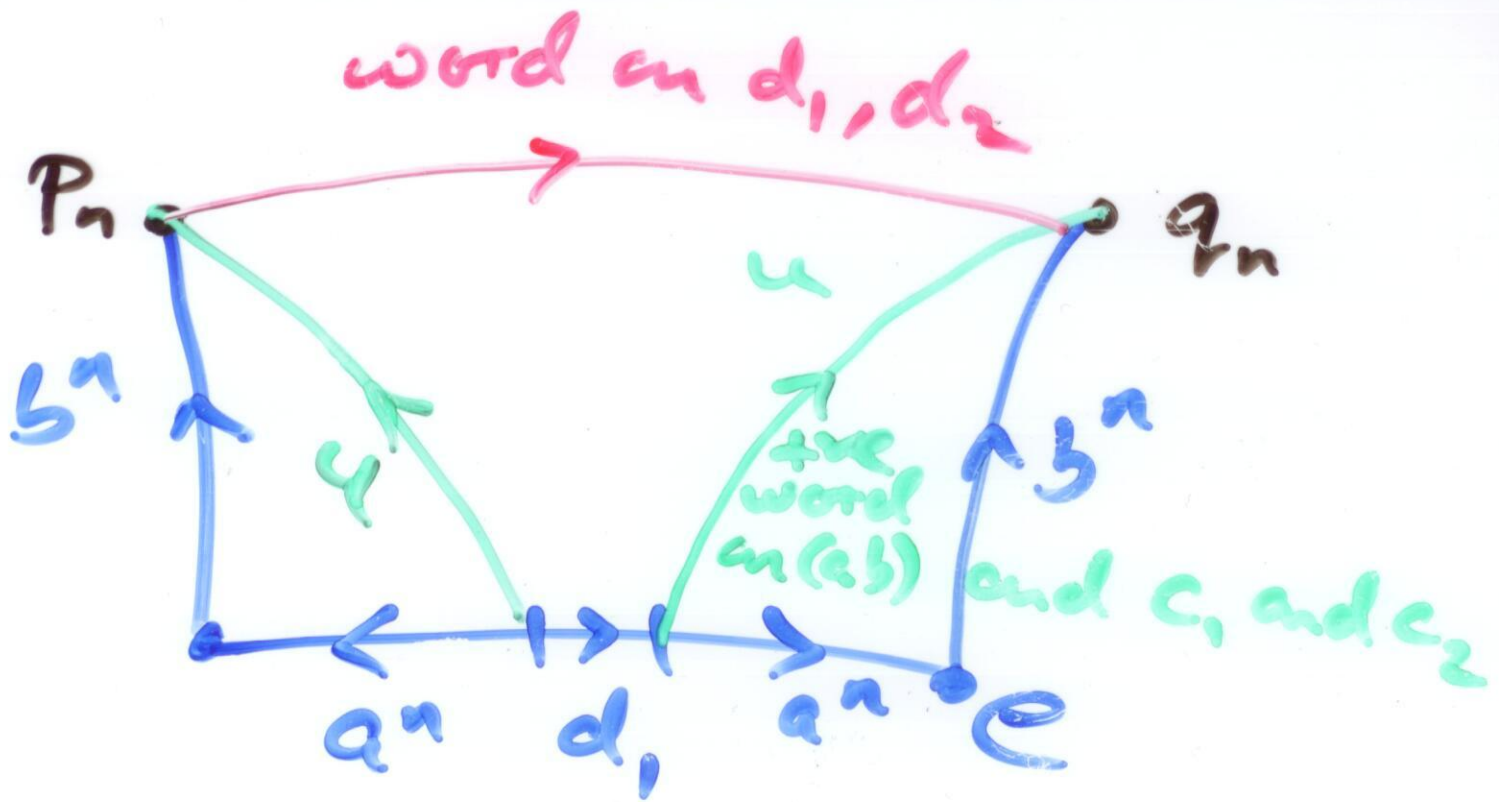 word on d₁, d₂
Pₙ
qₙ
u
bⁿ
bⁿ
u
+ve
word
on (ab) and c₁ and c₂
aⁿ d₁ aⁿ e